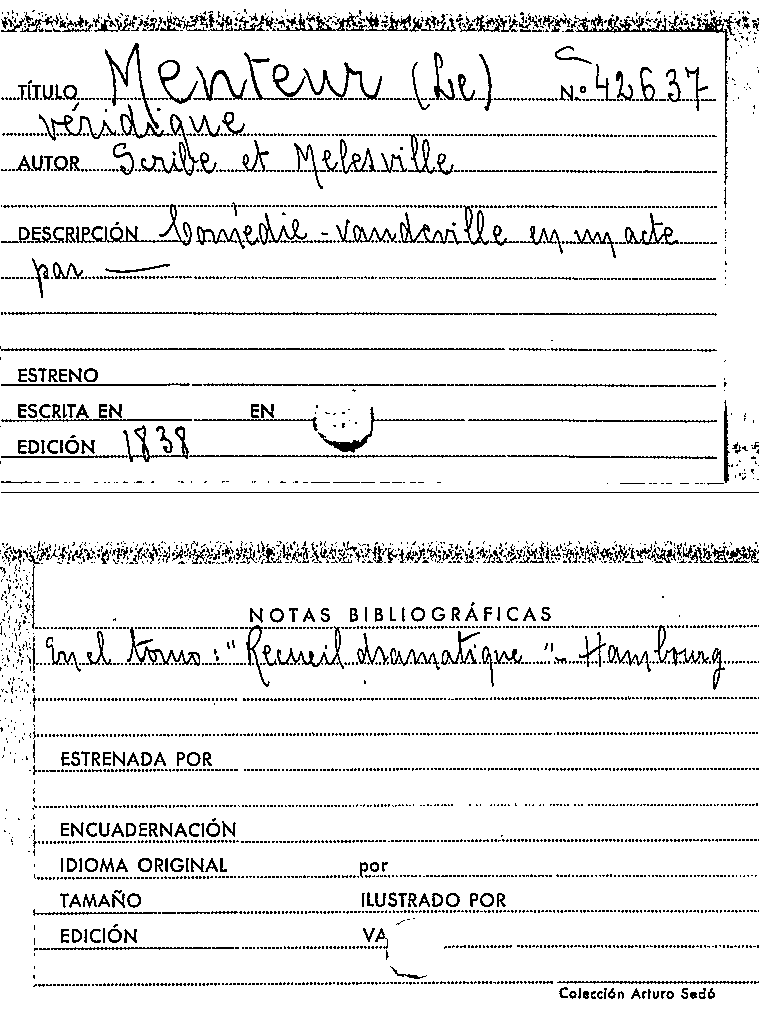 TÍTULO Menteur (Le) N.º 42637
véridique
AUTOR Scribe et Melesville
DESCRIPCIÓN Comédie-vaudeville en un acte
par —
ESTRENO
ESCRITA EN EN
EDICIÓN 1838
NOTAS BIBLIOGRÁFICAS
En el tomo: "Recueil dramatique" - Hambourg
ESTRENADA POR
ENCUADERNACIÓN
IDIOMA ORIGINAL por
TAMAÑO ILUSTRADO POR
EDICIÓN VA
Colección Arturo Sedó